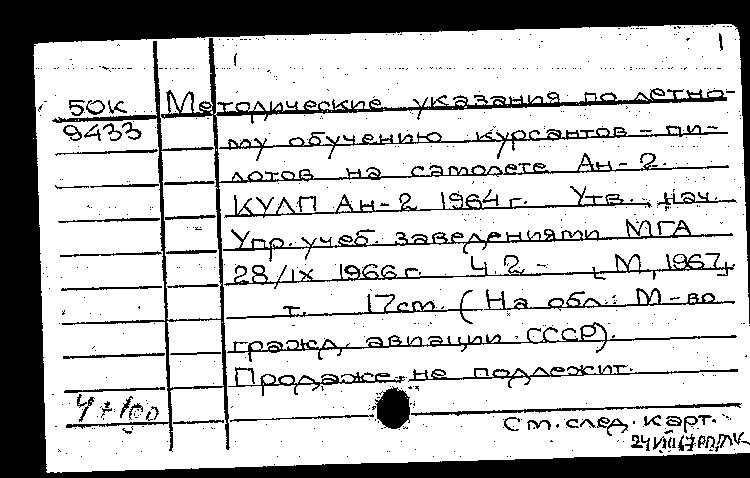 50К Методические указания по летно-
9433 му обучению курсантов - пи-
лотов на самолете Ан-2.
КУЛП Ан-2 1964 г. Утв. нач.
Упр. учеб. заведениями МГА
28/IX 1966 г. Ч.2 - [М, 1967]
т. 17 см. (На обл.: М-во
гражд. авиации СССР).
Продаже не подлежит.
См. след. карт.